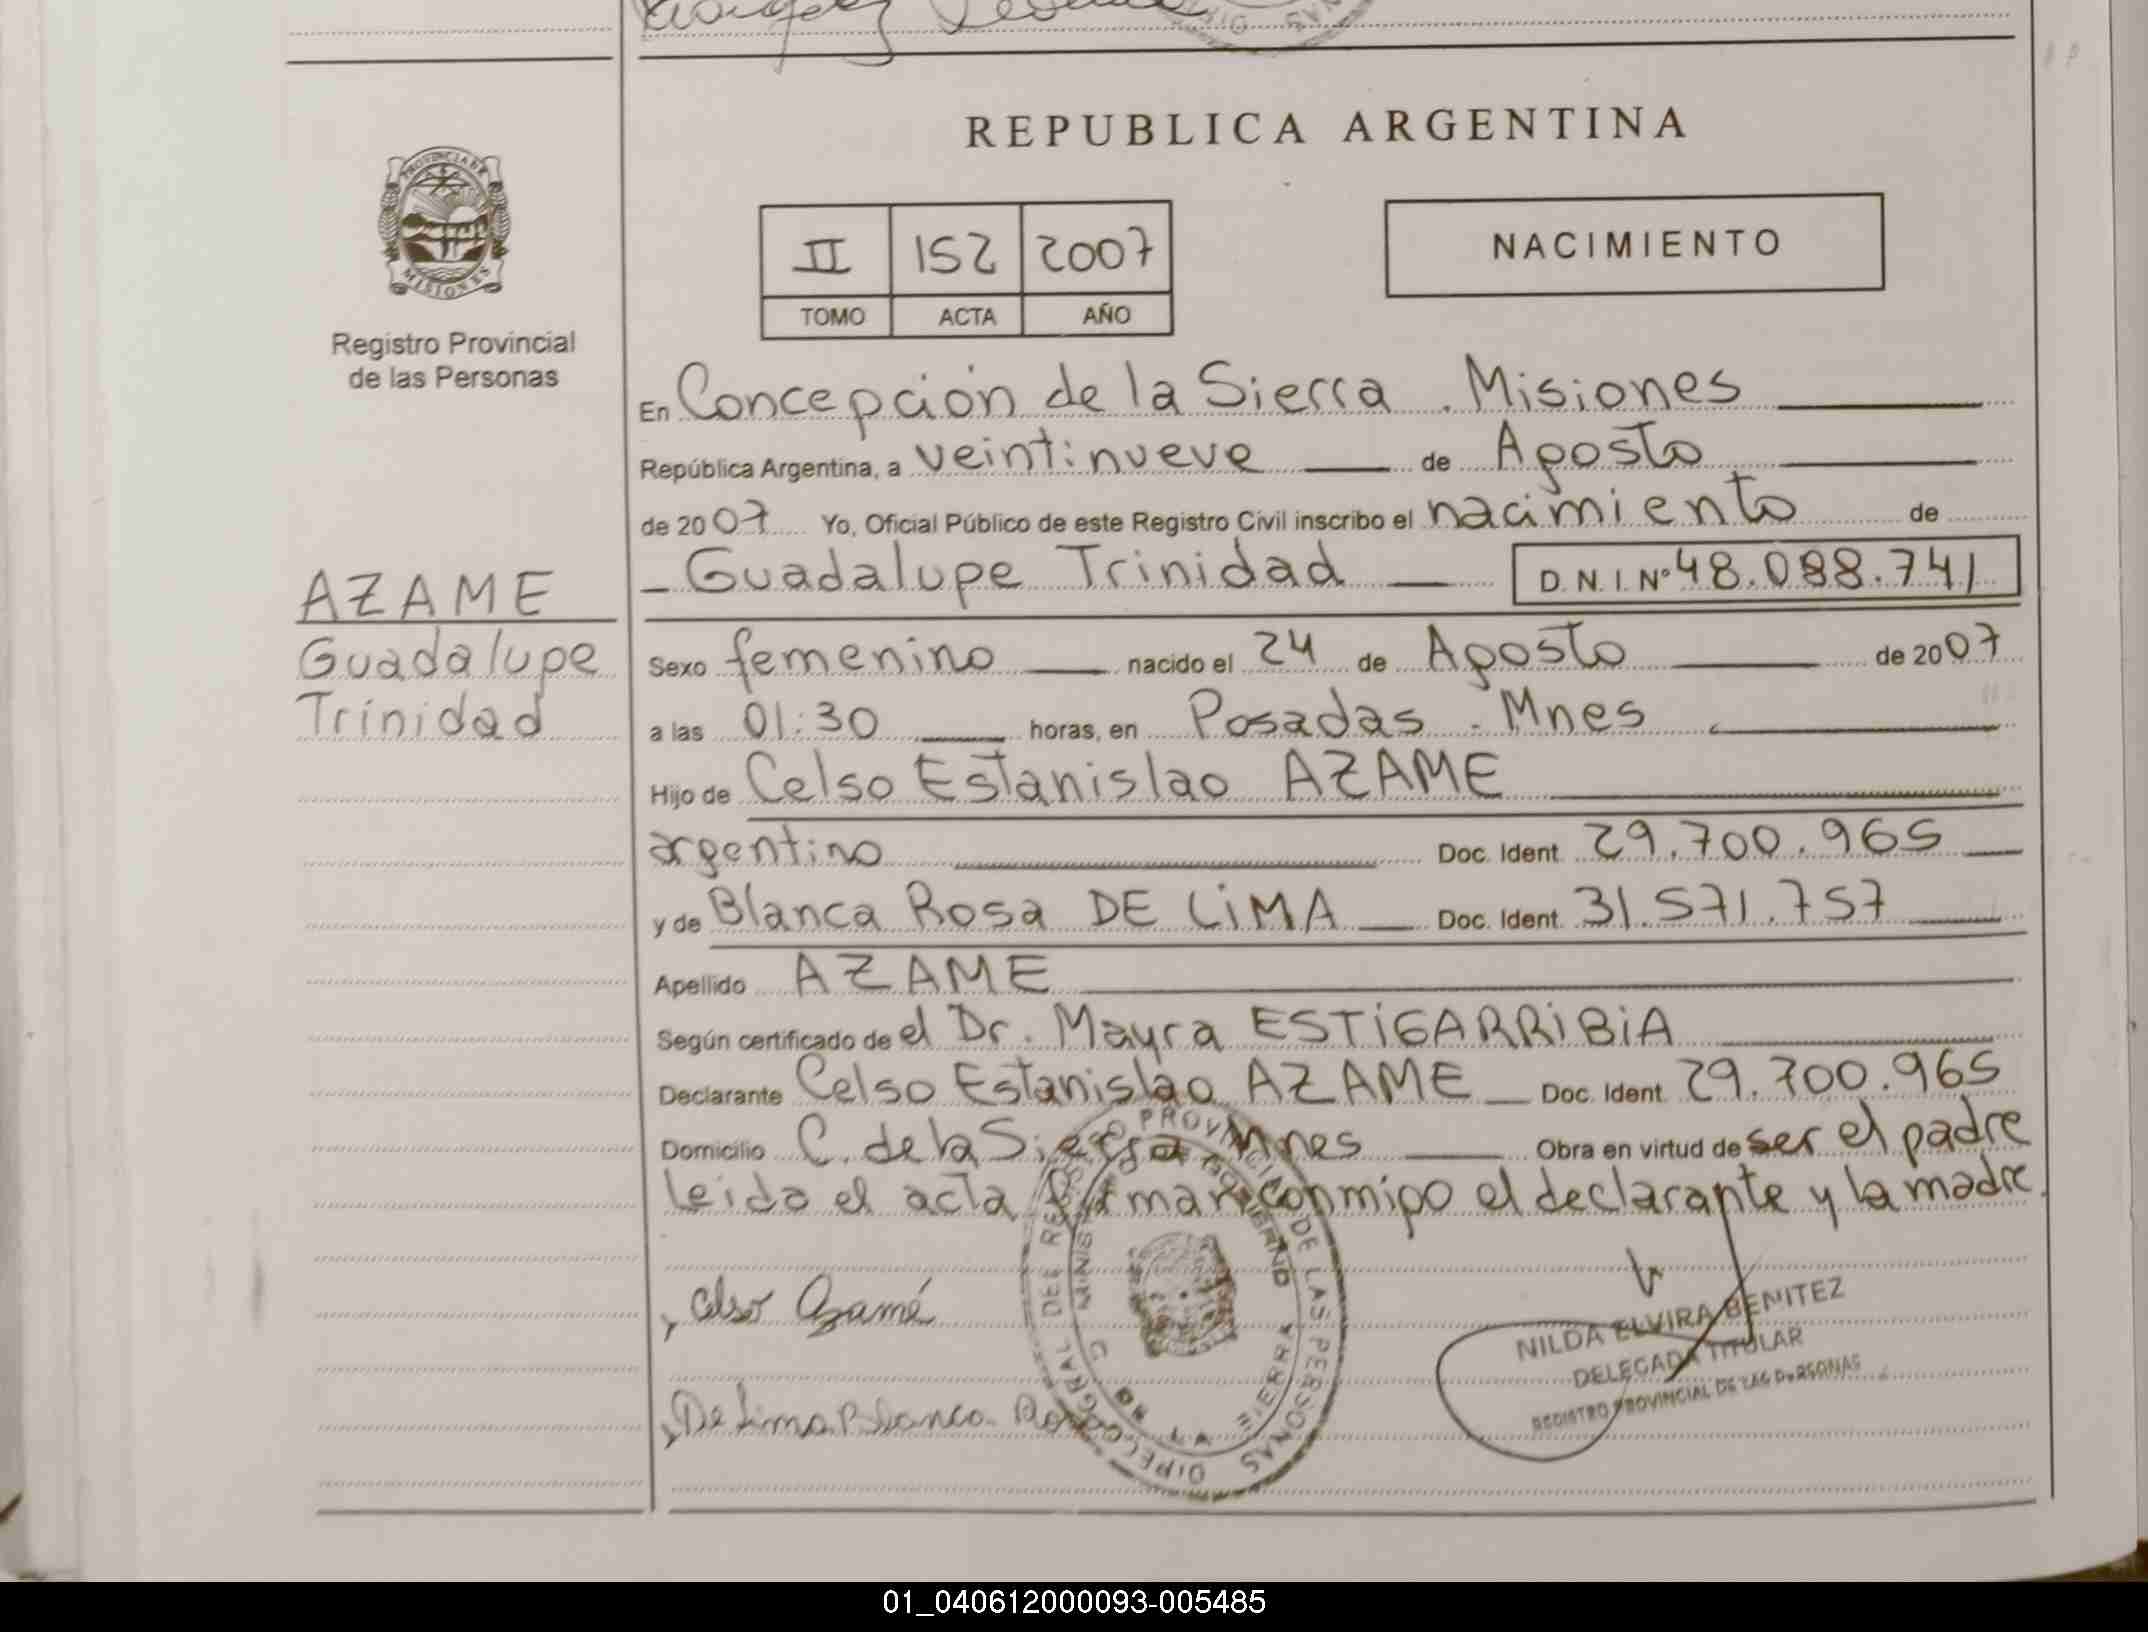 REPUBLICA ARGENTINA
PROVINCIA DE
MISIONES
Registro Provincial
de las Personas
II 152 2007
TOMO ACTA AÑO
NACIMIENTO
En Concepción de la Sierra . Misiones
República Argentina, a veintinueve de Agosto
de 2007 Yo, Oficial Público de este Registro Civil inscribo el nacimiento de
Guadalupe Trinidad D.N.I. Nº 48.088.741
AZAME
Guadalupe
Trinidad
Sexo femenino nacido el 24 de Agosto de 2007
a las 01:30 horas, en Posadas . Mnes
Hijo de Celso Estanislao AZAME
argentino Doc. Ident. 29.700.965
y de Blanca Rosa DE LiMA Doc. Ident. 31.571.757
Apellido AZAME
Según certificado de el Dr. Mayra ESTiGARRiBiA
Declarante Celso Estanislao AZAME Doc. Ident. 29.700.965
Domicilio C. de la Sierra Mnes Obra en virtud de ser el padre
leido el acta firman conmigo el declarante y la madre.
Celso Azamé
De Lima Blanca
NILDA ELVIRA BENITEZ
DELEGADA TITULAR
REGISTRO PROVINCIAL DE LAS PERSONAS
01_040612000093-005485